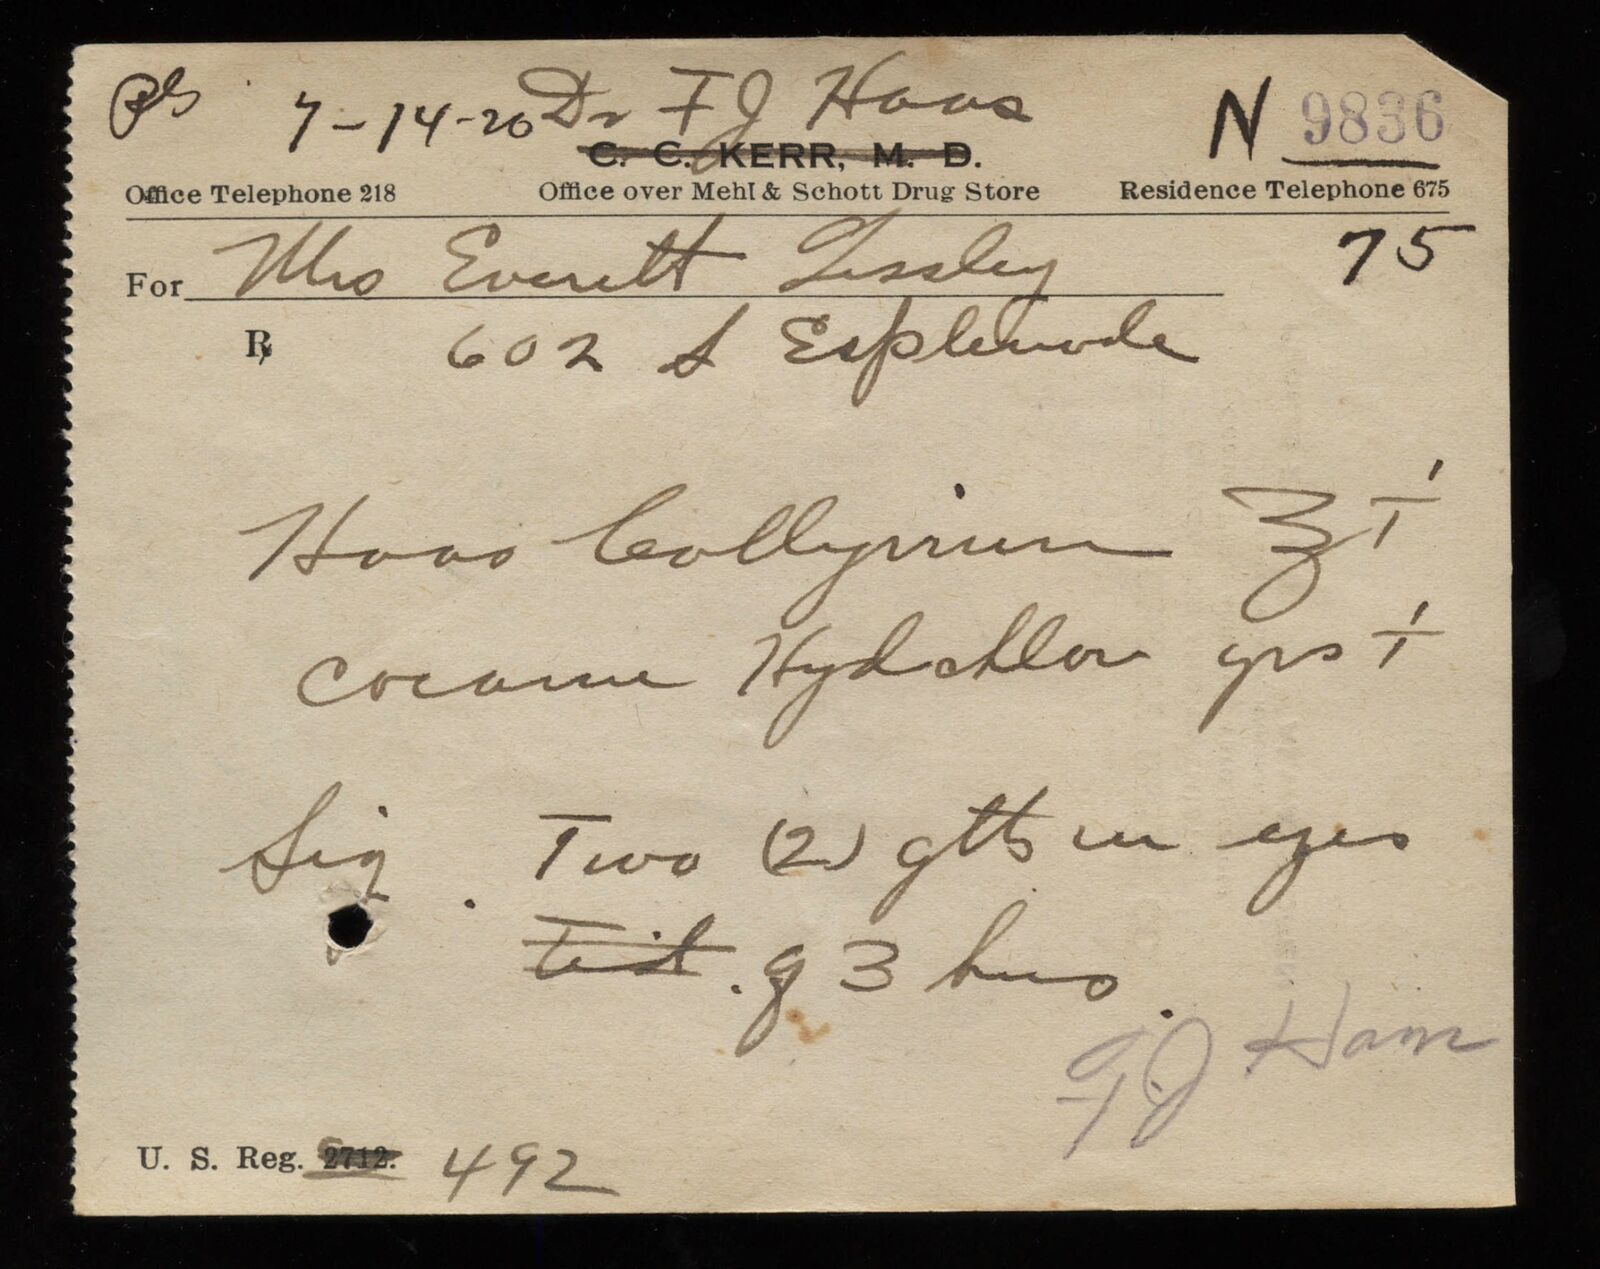 7-14-20 Dr F J Haas N 9836
C. C. KERR, M. D.
Office Telephone 218 Office over Mehl & Schott Drug Store Residence Telephone 675
For Mrs Everett 75
℞ 602 S Esplenade
Haas Collyrium ℥ i
Cocaine Hydchlor grs i
Sig. Two (2) gtts in eyes
q 3 hrs.
F J Haas
U. S. Reg. 2712. 492